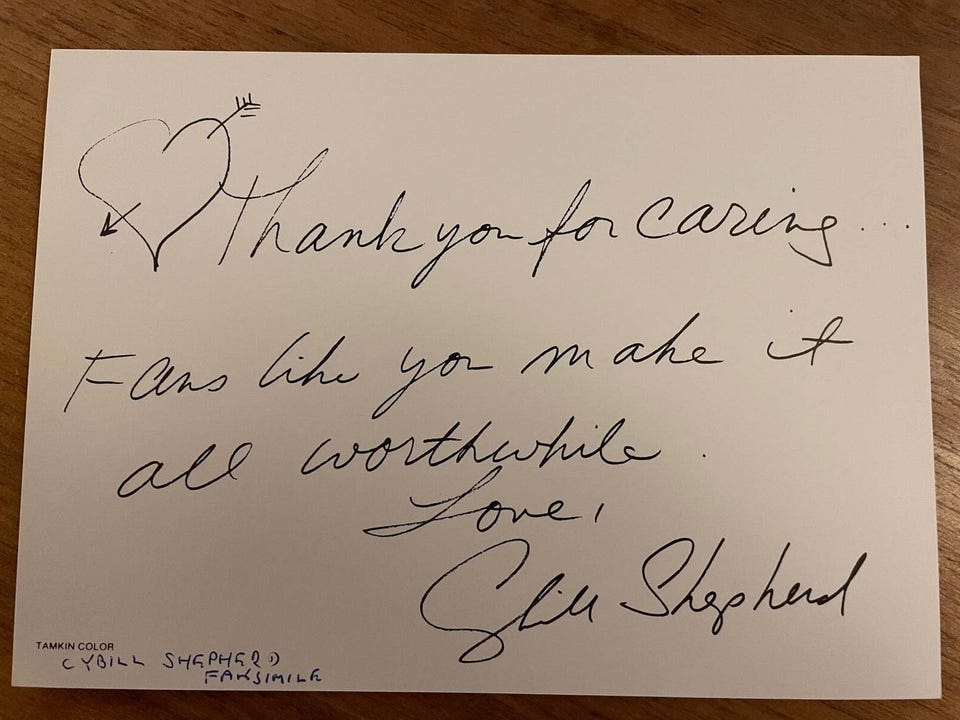 Thank you for caring...
Fans like you make it
all worthwhile.
Love,
Cybill Shepherd
TAMKIN COLOR
CYBILL SHEPHERD
FAKSIMILE